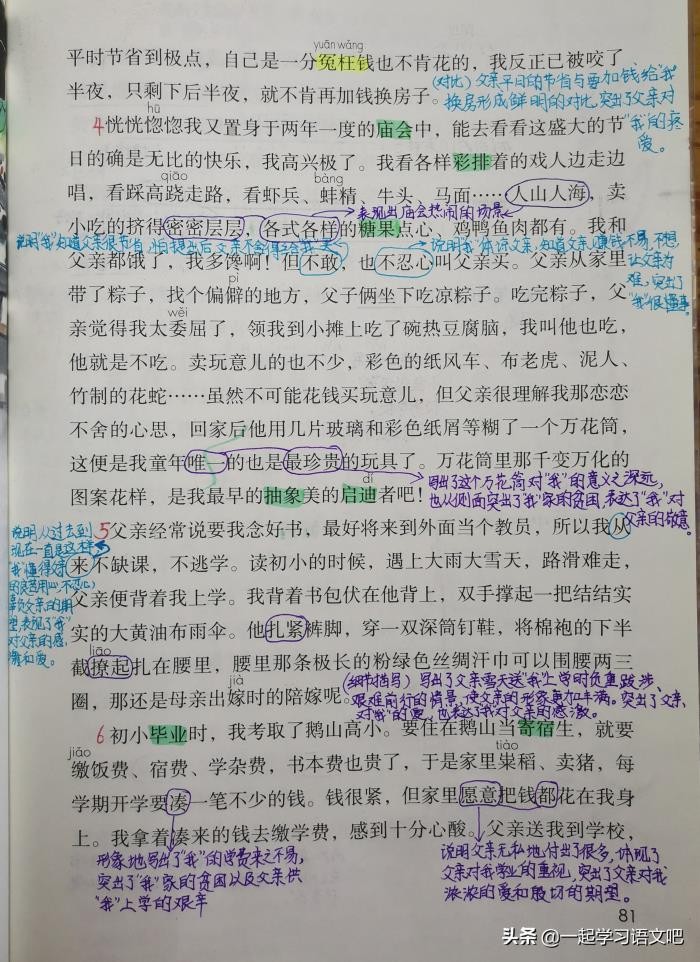 yuān wǎng
平时节省到极点，自己是一分冤枉钱也不肯花的，我反正已被咬了
半夜，只剩下后半夜，就不肯再加钱换房子。
(对比)父亲平日的节省与要加钱给“我”
换房形成鲜明的对比，突出了父亲对
“我”的疼
爱。
hū
4恍恍惚惚我又置身于两年一度的庙会中，能去看看这盛大的节
日的确是无比的快乐，我高兴极了。我看各样彩排着的戏人边走边
qiāo bàng
唱，看踩高跷走路，看虾兵、蚌精、牛头、马面……人山人海，卖
表现出庙会热闹的场景
小吃的挤得密密层层，各式各样的糖果点心、鸡鸭鱼肉都有。我和
说明“我”知道父亲很节省，怕提出后父亲不舍得给“我”买
说明“我”体谅父亲，知道父亲赚钱不易，不想
让父亲为
难，突出了
“我”很懂事。
父亲都饿了，我多馋啊！但不敢，也不忍心叫父亲买。父亲从家里
pì
带了粽子，找个偏僻的地方，父子俩坐下吃凉粽子。吃完粽子，父
wěi
亲觉得我太委屈了，领我到小摊上吃了碗热豆腐脑，我叫他也吃，
他就是不吃。卖玩意儿的也不少，彩色的纸风车、布老虎、泥人、
竹制的花蛇……虽然不可能花钱买玩意儿，但父亲很理解我那恋恋
不舍的心思，回家后他用几片玻璃和彩色纸屑等糊了一个万花筒，
这便是我童年唯一的也是最珍贵的玩具了。万花筒里那千变万化的
dí
图案花样，是我最早的抽象美的启迪者吧！
写出了这个万花筒对“我”的意义之深远，
也从侧面突出了“我”家的贫困，表达了“我”对
父亲的敬意。
5父亲经常说要我念好书，最好将来到外面当个教员，所以我从
来不缺课，不逃学。读初小的时候，遇上大雨大雪天，路滑难走，
父亲便背着我上学。我背着书包伏在他背上，双手撑起一把结结实
实的大黄油布雨伞。他扎紧裤脚，穿一双深筒钉鞋，将棉袍的下半
liāo
截撩起扎在腰里，腰里那条极长的粉绿色丝绸汗巾可以围腰两三
jià
圈，那还是母亲出嫁时的陪嫁呢。
说明从过去到
现在一直是这样，
“我”懂得父亲
的良苦用心，不忍心
辜负父亲的期
望，表现了“我”
对父亲的感
激和爱。
(细节描写)写出了父亲雪天送“我”上学时负重跋涉、
艰难前行的情景，使父亲的形象更加丰满。突出了父亲
对“我”的爱，也表达了我对父亲的感激。
6初小毕业时，我考取了鹅山高小。要住在鹅山当寄宿生，就要
jiǎo tiào
缴饭费、宿费、学杂费，书本费也贵了，于是家里粜稻、卖猪，每
学期开学要凑一笔不少的钱。钱很紧，但家里愿意把钱都花在我身
上。我拿着凑来的钱去缴学费，感到十分心酸。父亲送我到学校，
形象地写出了“我”的学费来之不易，
突出了“我”家的贫困以及父亲供
“我”上学的艰辛
说明父亲无私地付出了很多，体现了
父亲对我学业的重视，突出了父亲对我
浓浓的爱和殷切的期望。
81
头条 @一起学习语文吧